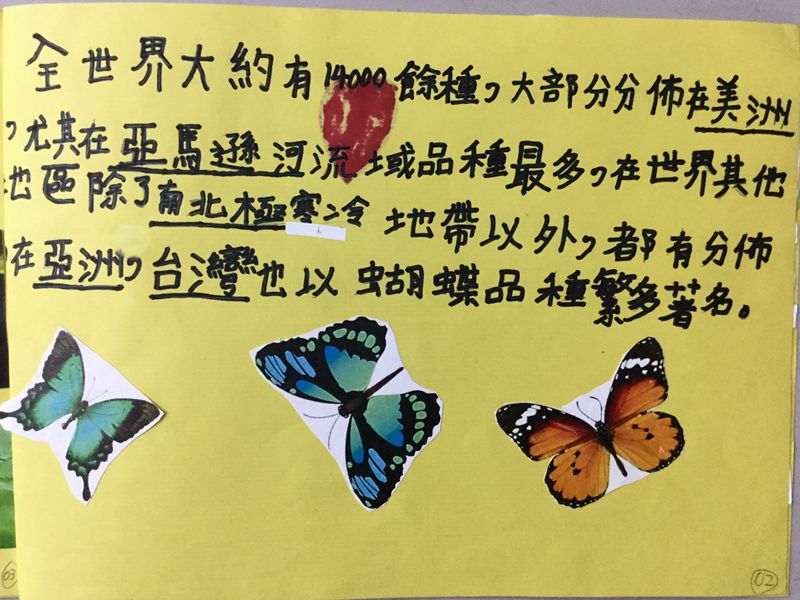 全世界大約有14000餘種，大部分分佈在美洲
，尤其在亞馬遜河流域品種最多，在世界其他
地區除了南北極寒冷地帶以外，都有分佈
在亞洲，台灣也以蝴蝶品種繁多著名。
03
02